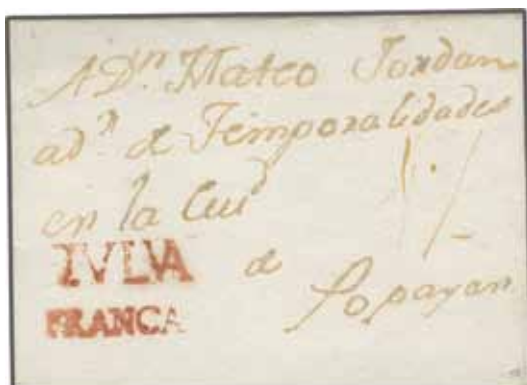 A Dn. Mateo Jordan
adr. de Temporalidades
en la Ciud
TVLVA de Popayan
FRANCA